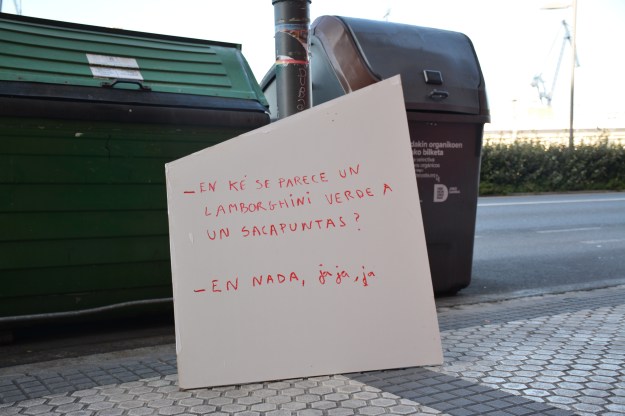 – EN KÉ SE PARECE UN
LAMBORGHINI VERDE A
UN SACAPUNTAS?
– EN NADA, ja ja, ja
dakin organikoen
ko bilketa